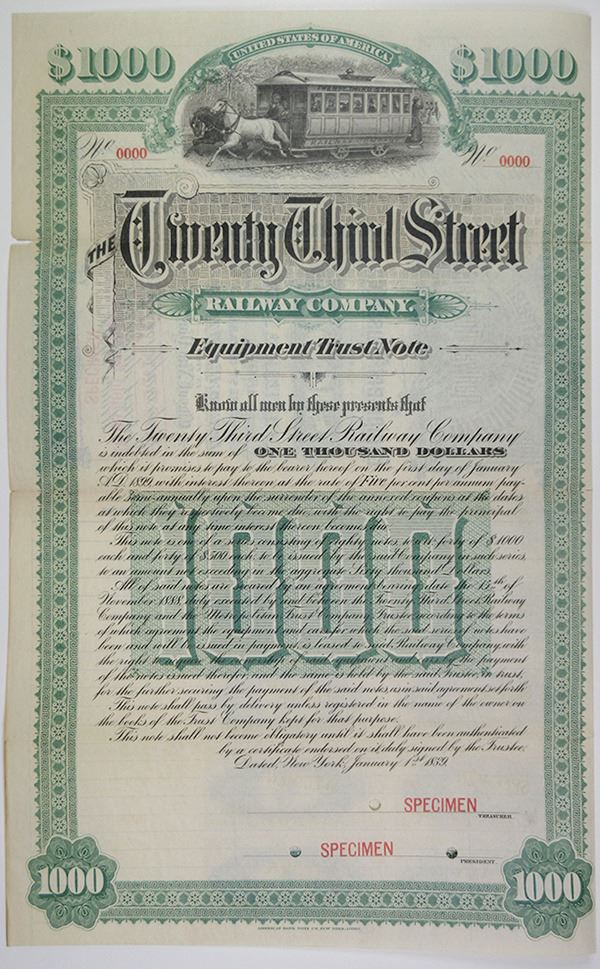 UNITED STATES OF AMERICA
$1000 $1000
No. 0000 No. 0000
THE Twenty Third Street
RAILWAY COMPANY.
Equipment Trust Note
Know all men by these presents that
The Twenty Third Street Railway Company
is indebted in the sum of ONE THOUSAND DOLLARS
which it promises to pay to the bearer hereof on the first day of January
A.D. 1899, with interest thereon at the rate of Five per cent per annum pay-
able semi-annually upon the surrender of the annexed coupons at the dates
at which they respectively become due, with the right to pay the principal
of this note at any time interest hereon becomes
This note is one of a series consisting of eighty notes, to wit: forty of $1000
each and forty of $500 each, to be issued by the said Company in such series,
to an amount not exceeding in the aggregate Sixty thousand Dollars.
All of said notes are secured by an agreement bearing date the 15th of
November 1888, duly executed by and between the Twenty Third Street Railway
Company and the Metropolitan Trust Company, Trustee, according to the terms
of which agreement the equipment and cars for which the said series of notes have
been and will be issued in payment is leased to said Railway Company, with
the right to the ownership of said equipment the payment
of the notes issued therefor, and the same is held by the said Trustee, in trust,
for the further securing the payment of the said notes, as in said agreement set forth
This note shall pass by delivery unless registered in the name of the owner on
the books of the Trust Company kept for that purpose.
This note shall not become obligatory until it shall have been authenticated
by a certificate endorsed on it, duly signed by the Trustee.
Dated, New York, January 1st 1889.
1000
SPECIMEN
TREASURER.
SPECIMEN
PRESIDENT.
1000 1000
AMERICAN BANK NOTE CO. NEW YORK.